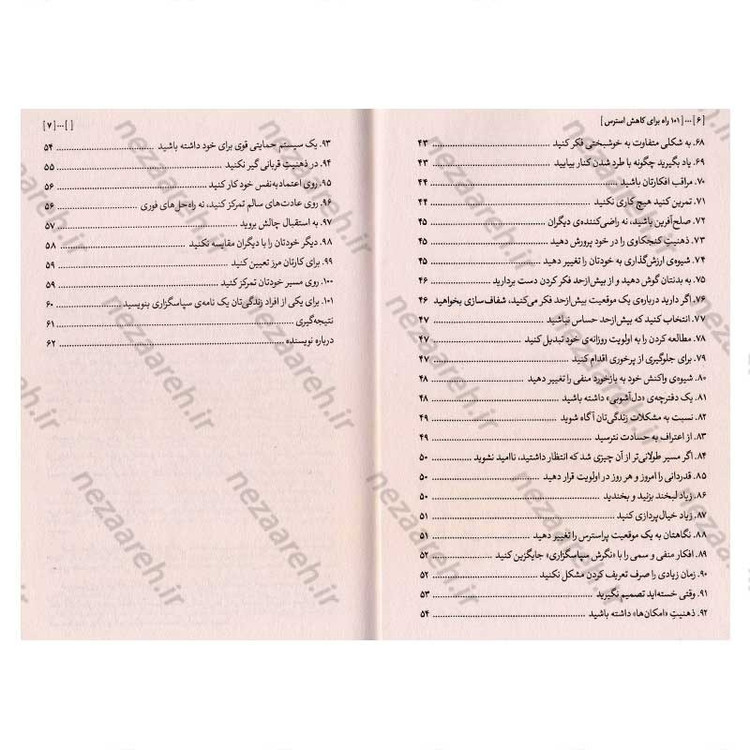 [ ۶ ]...[ ۱۰۱ راه برای کاهش استرس ]
۶۸. به شکلی متفاوت به خوشبختی فکر کنید ۴۳
۶۹. یاد بگیرید چگونه با طرد شدن کنار بیایید ۴۳
۷۰. مراقب افکارتان باشید ۴۴
۷۱. تمرین کنید هیچ کاری نکنید ۴۴
۷۲. صلح‌آفرین باشید، نه راضی‌کننده‌ی دیگران ۴۵
۷۳. ذهنیتِ کنجکاوی را در خود پرورش دهید ۴۵
۷۴. شیوه‌ی ارزش‌گذاری به خودتان را تغییر دهید ۴۵
۷۵. به بدنتان گوش دهید و از بیش‌ازحد فکر کردن دست بردارید ۴۶
۷۶. اگر دارید درباره‌ی یک موقعیت بیش‌ازحد فکر می‌کنید، شفاف‌سازی بخواهید ۴۶
۷۷. انتخاب کنید که بیش‌ازحد حساس نباشید ۴۷
۷۸. مطالعه کردن را به اولویت روزانه‌ی خود تبدیل کنید ۴۷
۷۹. برای جلوگیری از پرخوری اقدام کنید ۴۷
۸۰. شیوه‌ی واکنش خود به بازخورد منفی را تغییر دهید ۴۸
۸۱. یک دفترچه‌ی «دل‌آشوبی» داشته باشید ۴۸
۸۲. نسبت به مشکلات زندگی‌تان آگاه شوید ۴۹
۸۳. از اعتراف به حسادت نترسید ۴۹
۸۴. اگر مسیر طولانی‌تر از آن چیزی شد که انتظار داشتید، ناامید نشوید ۵۰
۸۵. قدردانی را امروز و هر روز در اولویت قرار دهید ۵۰
۸۶. زیاد لبخند بزنید و بخندید ۵۰
۸۷. زیاد خیال‌پردازی کنید ۵۱
۸۸. نگاهتان به یک موقعیت پراسترس را تغییر دهید ۵۱
۸۹. افکار منفی و سمی را با «نگرش سپاسگزاری» جایگزین کنید ۵۲
۹۰. زمان زیادی را صرف تعریف کردن مشکل نکنید ۵۲
۹۱. وقتی خسته‌اید تصمیم نگیرید ۵۳
۹۲. ذهنیتِ «امکان‌ها» داشته باشید ۵۴
[ ]...[ ۷ ]
۹۳. یک سیستم حمایتی قوی برای خود داشته باشید ۵۴
۹۴. در ذهنیتِ قربانی گیر نکنید ۵۵
۹۵. روی اعتمادبه‌نفس خود کار کنید ۵۶
۹۶. روی عادت‌های سالم تمرکز کنید، نه راه‌حل‌های فوری ۵۶
۹۷. به استقبال چالش بروید ۵۷
۹۸. دیگر خودتان را با دیگران مقایسه نکنید ۵۸
۹۹. برای کارتان مرز تعیین کنید ۵۹
۱۰۰. روی مسیر خودتان تمرکز کنید ۵۹
۱۰۱. برای یکی از افراد زندگی‌تان یک نامه‌ی سپاسگزاری بنویسید ۶۰
نتیجه‌گیری ۶۱
درباره نویسنده ۶۲
nezaareh.ir
nezaareh.ir
nezaareh.ir
nezaareh.ir
nezaareh.ir
nezaareh.ir
nezaareh.ir